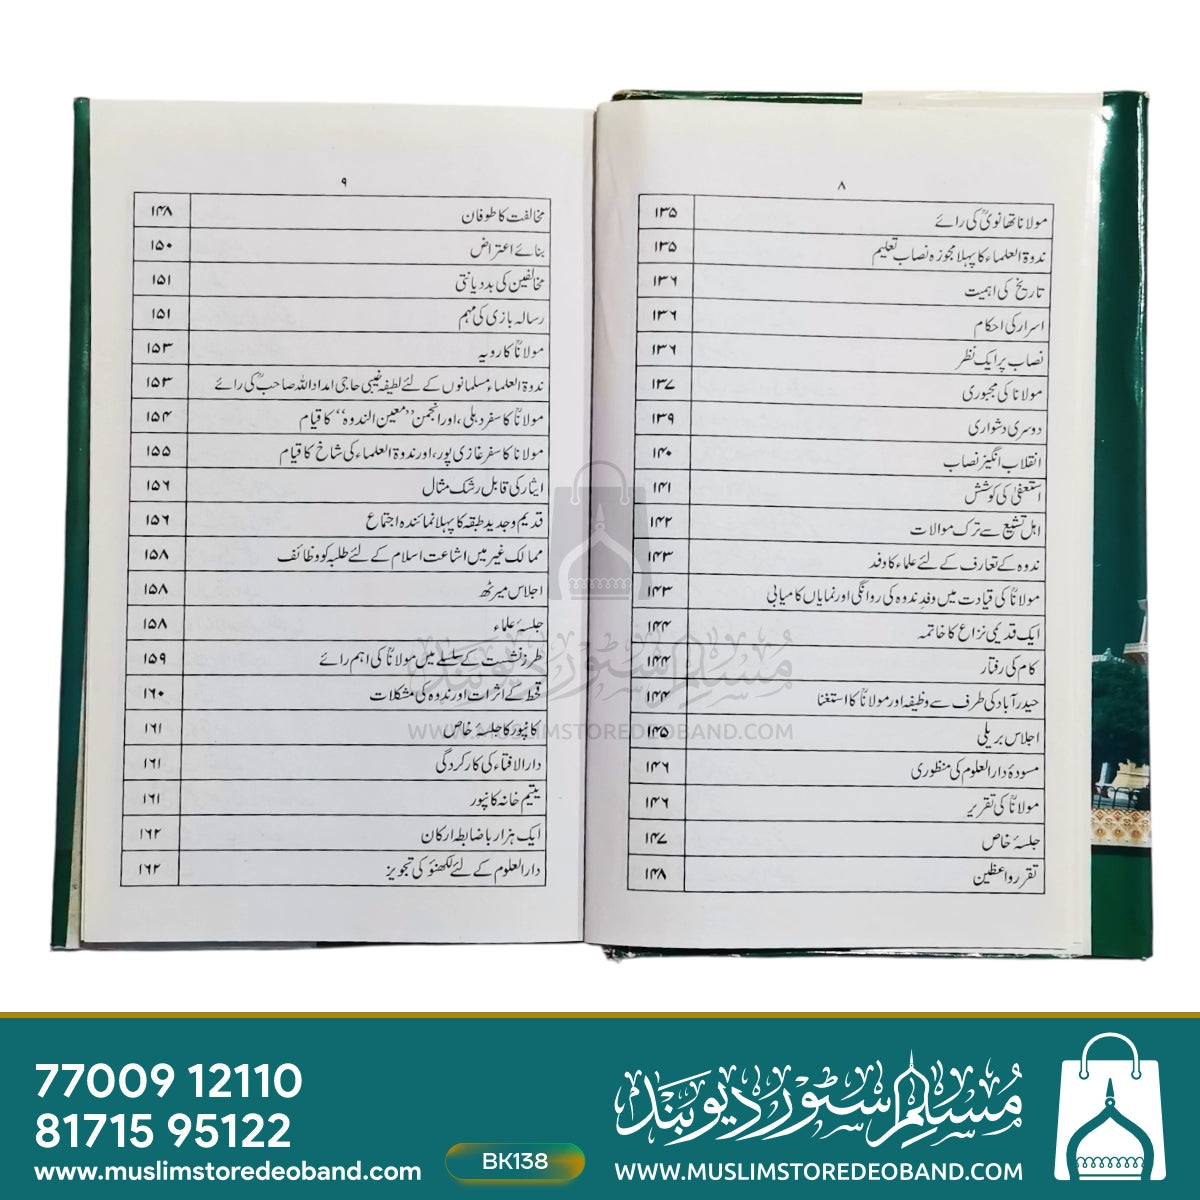 ۸
مولانا تھانویؒ کی رائے ۱۳۵
ندوۃ العلماء کا پہلا مجوزہ نصاب تعلیم ۱۳۵
تاریخ کی اہمیت ۱۳۶
اسرار کی احکام ۱۳۶
نصاب پر ایک نظر ۱۳۶
مولانا کی مجبوری ۱۳۷
دوسری دشواری ۱۳۹
انقلاب انگیز نصاب ۱۴۰
استعفیٰ کی کوشش ۱۴۱
اہل تشیع سے ترک موالات ۱۴۲
ندوہ کے تعارف کے لئے علماء کا وفد ۱۴۳
مولاناؒ کی قیادت میں وفدِ ندوہ کی روانگی اور نمایاں کامیابی ۱۴۳
ایک قدیمی نزاع کا خاتمہ ۱۴۴
کام کی رفتار ۱۴۴
حیدرآباد کی طرف سے وظیفہ اور مولاناؒ کا استغنا ۱۴۴
اجلاس بریلی ۱۴۵
مسودۂ دارالعلوم کی منظوری ۱۴۶
مولاناؒ کی تقریر ۱۴۶
جلسۂ خاص ۱۴۷
تقرر واعظین ۱۴۸
۹
مخالفت کا طوفان ۱۴۸
بنائے اعتراض ۱۵۰
مخالفین کی بددیانتی ۱۵۱
رسالہ بازی کی مہم ۱۵۱
مولاناؒ کا رویہ ۱۵۳
ندوۃ العلماء مسلمانوں کے لئے لطیفہ غیبی حاجی امداد اللہ صاحبؒ کی رائے ۱۵۳
مولاناؒ کا سفر دہلی، اور انجمن ”معین الندوہ“ کا قیام ۱۵۴
مولانا کا سفر غازی پور، اور ندوۃ العلماء کی شاخ کا قیام ۱۵۵
ایثار کی قابل رشک مثال ۱۵۶
قدیم وجدید طبقہ کا پہلا نمائندہ اجتماع ۱۵۶
ممالک غیر میں اشاعت اسلام کے لئے طلبہ کو وظائف ۱۵۸
اجلاس میرٹھ ۱۵۸
جلسۂ علماء ۱۵۸
طرز نشست کے سلسلے میں مولاناؒ کی اہم رائے ۱۵۹
قحط کے اثرات اور ندوہ کی مشکلات ۱۶۰
کانپور کا جلسۂ خاص ۱۶۱
دارالافتاء کی کارکردگی ۱۶۱
یتیم خانہ کانپور ۱۶۱
ایک ہزار باضابطہ ارکان ۱۶۲
دارالعلوم کے لئے لکھنؤ کی تجویز ۱۶۲
مسلم سٹور دیوبند
WWW.MUSLIMSTOREDEOBAND.COM
77009 12110
81715 95122
www.muslimstoredeoband.com
BK138
مسلم سٹور دیوبند
WWW.MUSLIMSTOREDEOBAND.COM